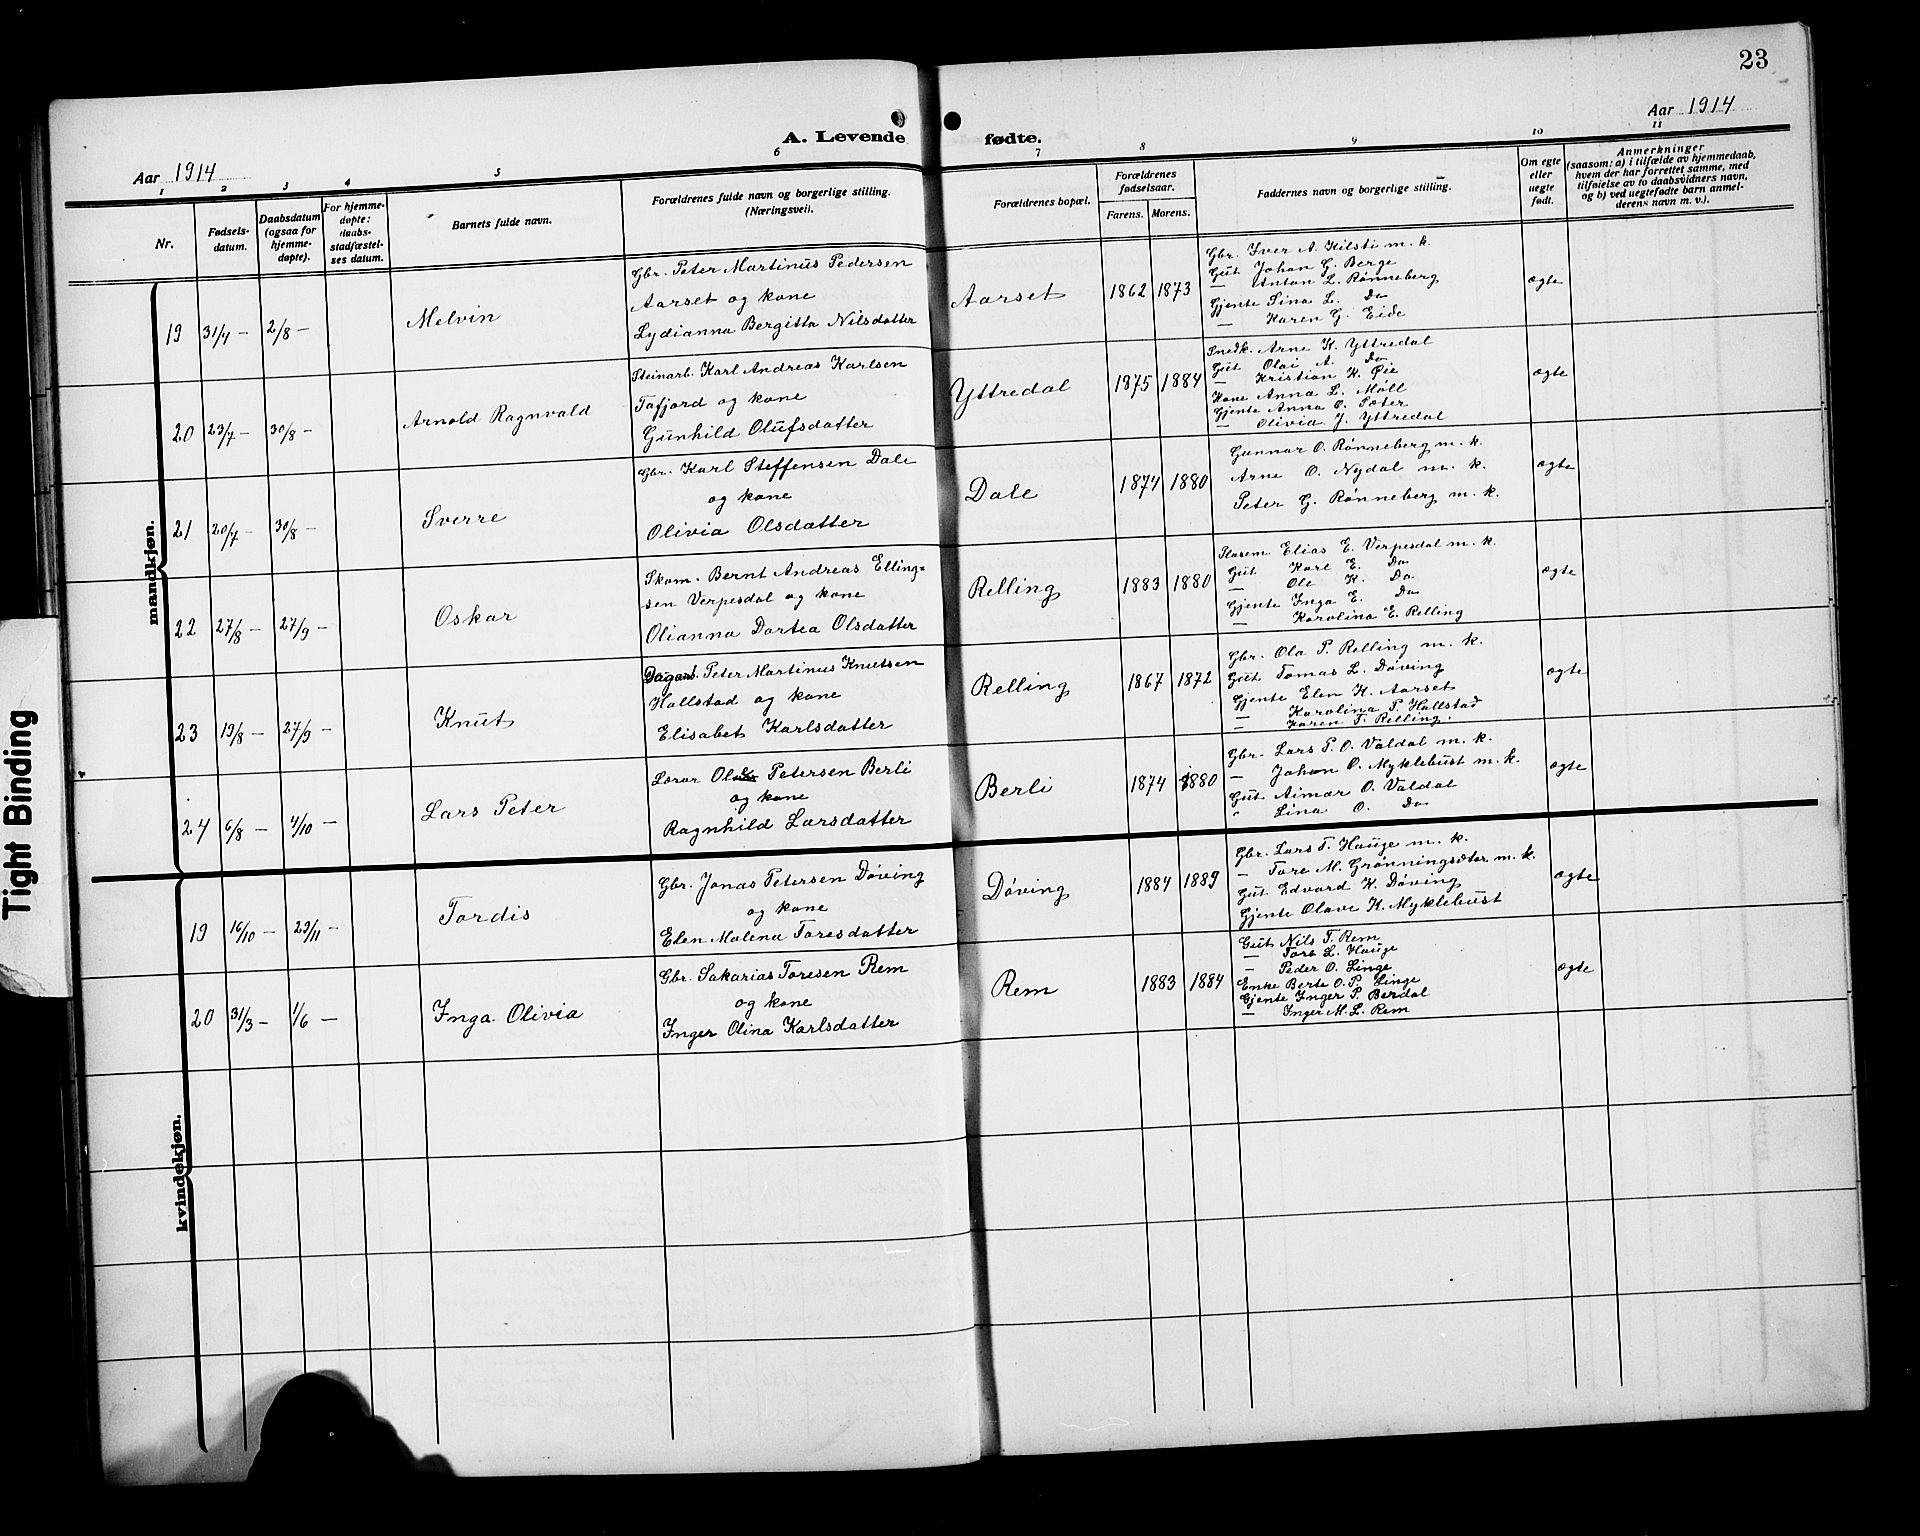 23
Aar 1914
Aar 1914
A. Levende fødte.
1 2 3 4 5 6 7 8 9 10 11
Nr.
Fødsels-
datum.
Daabsdatum
(ogsaa for
hjemme-
døpte).
For hjemme-
døpte:
daabs-
stadfæstel-
ses datum.
Barnets fulde navn.
Forældrenes fulde navn og borgerlige stilling.
(Næringsvei).
Forældrenes bopæl.
Forældrenes
fødselsaar.
Farens. Morens.
Faddernes navn og borgerlige stilling.
Om egte
eller
uegte
født.
Anmerkninger
(saasom: a) i tilfælde av hjemmedaab,
hvem der har forrettet samme, med
tilføielse av to daabsvidners navn,
og b) ved uegtefødte barn anmel-
derens navn m. v.).
mandkjøn.
19 31/7 — 2/8 — Melvin
Gbr. Peter Martinus Pedersen
Aarset og kone
Lydianna Bergitta Nilsdatter
Aarset 1862 1873
Gbr. Iver A. Kilsti m. k.
Gut Johan G. Berge
— Anton L. Rønneberg
Gjente Sina L. Do
— Karen G. Eide
ægte
20 23/7 — 30/8 — Arnold Ragnvald
Steinarb. Karl Andreas Karlsen
Tafjord og kone
Gunhild Olufsdatter
Yttredal 1875 1884
Snedk. Arne K. Yttredal
Gut Olai A. Do
— Kristian K. Øie
Kone Anna L. Moll
Gjente Anna O. Sæter
— Olivia J. Yttredal
ægte
21 20/7 — 30/8 — Sverre
Gbr. Karl Steffensen Dale
og kone
Olivia Olsdatter
Dale 1874 1880
Gunnar O. Rønneberg m. k.
Arne O. Nydal m. k.
Peter G. Rønneberg m. k.
ægte
22 27/8 — 27/9 — Oskar
Skom. Bernt Andreas Elling=
sen Verpesdal og kone
Olianna Dortea Olsdatter
Relling 1883 1880
Plasem Elias E. Verpesdal m. k.
Gut Karl E. Do
— Ole K. Do
Gjente Inga E. Do
— Karolina E. Relling
ægte
23 19/8 — 27/9 — Knut
Peter Martinus Knutsen
Hallstad og kone
Elisabet Karlsdatter
Relling 1867 1872
Gbr. Ola P. Relling m. k.
Gut Tomas L. Døving
Gjente Elen K. Aarset
— Karolina P. Hallstad
— Karen T. Relling.
ægte
24 6/8 — 4/10 — Lars Peter
Lærar Petersen Berli
og kone
Ragnhild Larsdatter
Berli 1874 1880
Gbr. Lars P. O. Valdal m. k.
— Johan O. Myklebust m. k.
Gut Aimar O. Valdal
" Lina O. Do
ægte
kvindekjøn.
19 16/10 — 29/11 — Tordis
Gbr. Jonas Petersen Døving
og kone
Elen Malena Toresdatter
Døving 1884 1889
Gbr. Lars T. Hauge m. k.
— Tore M. Grønningsæter m. k.
Gut Edvard K. Døving
Gjente Olave K. Myklebust
ægte
20 31/3 — 1/6 — Inga Olivia
Gbr. Sakarias Toresen Rem
og kone
Inger Olina Karlsdatter
Rem 1883 1884
Gut Nils T. Rem
— Tore L. Hauge
— Peder O. Linge
Enke Berte O. P. Linge
Gjente Inger P. Berdal
— Inger M. L. Rem
ægte
Tight Binding